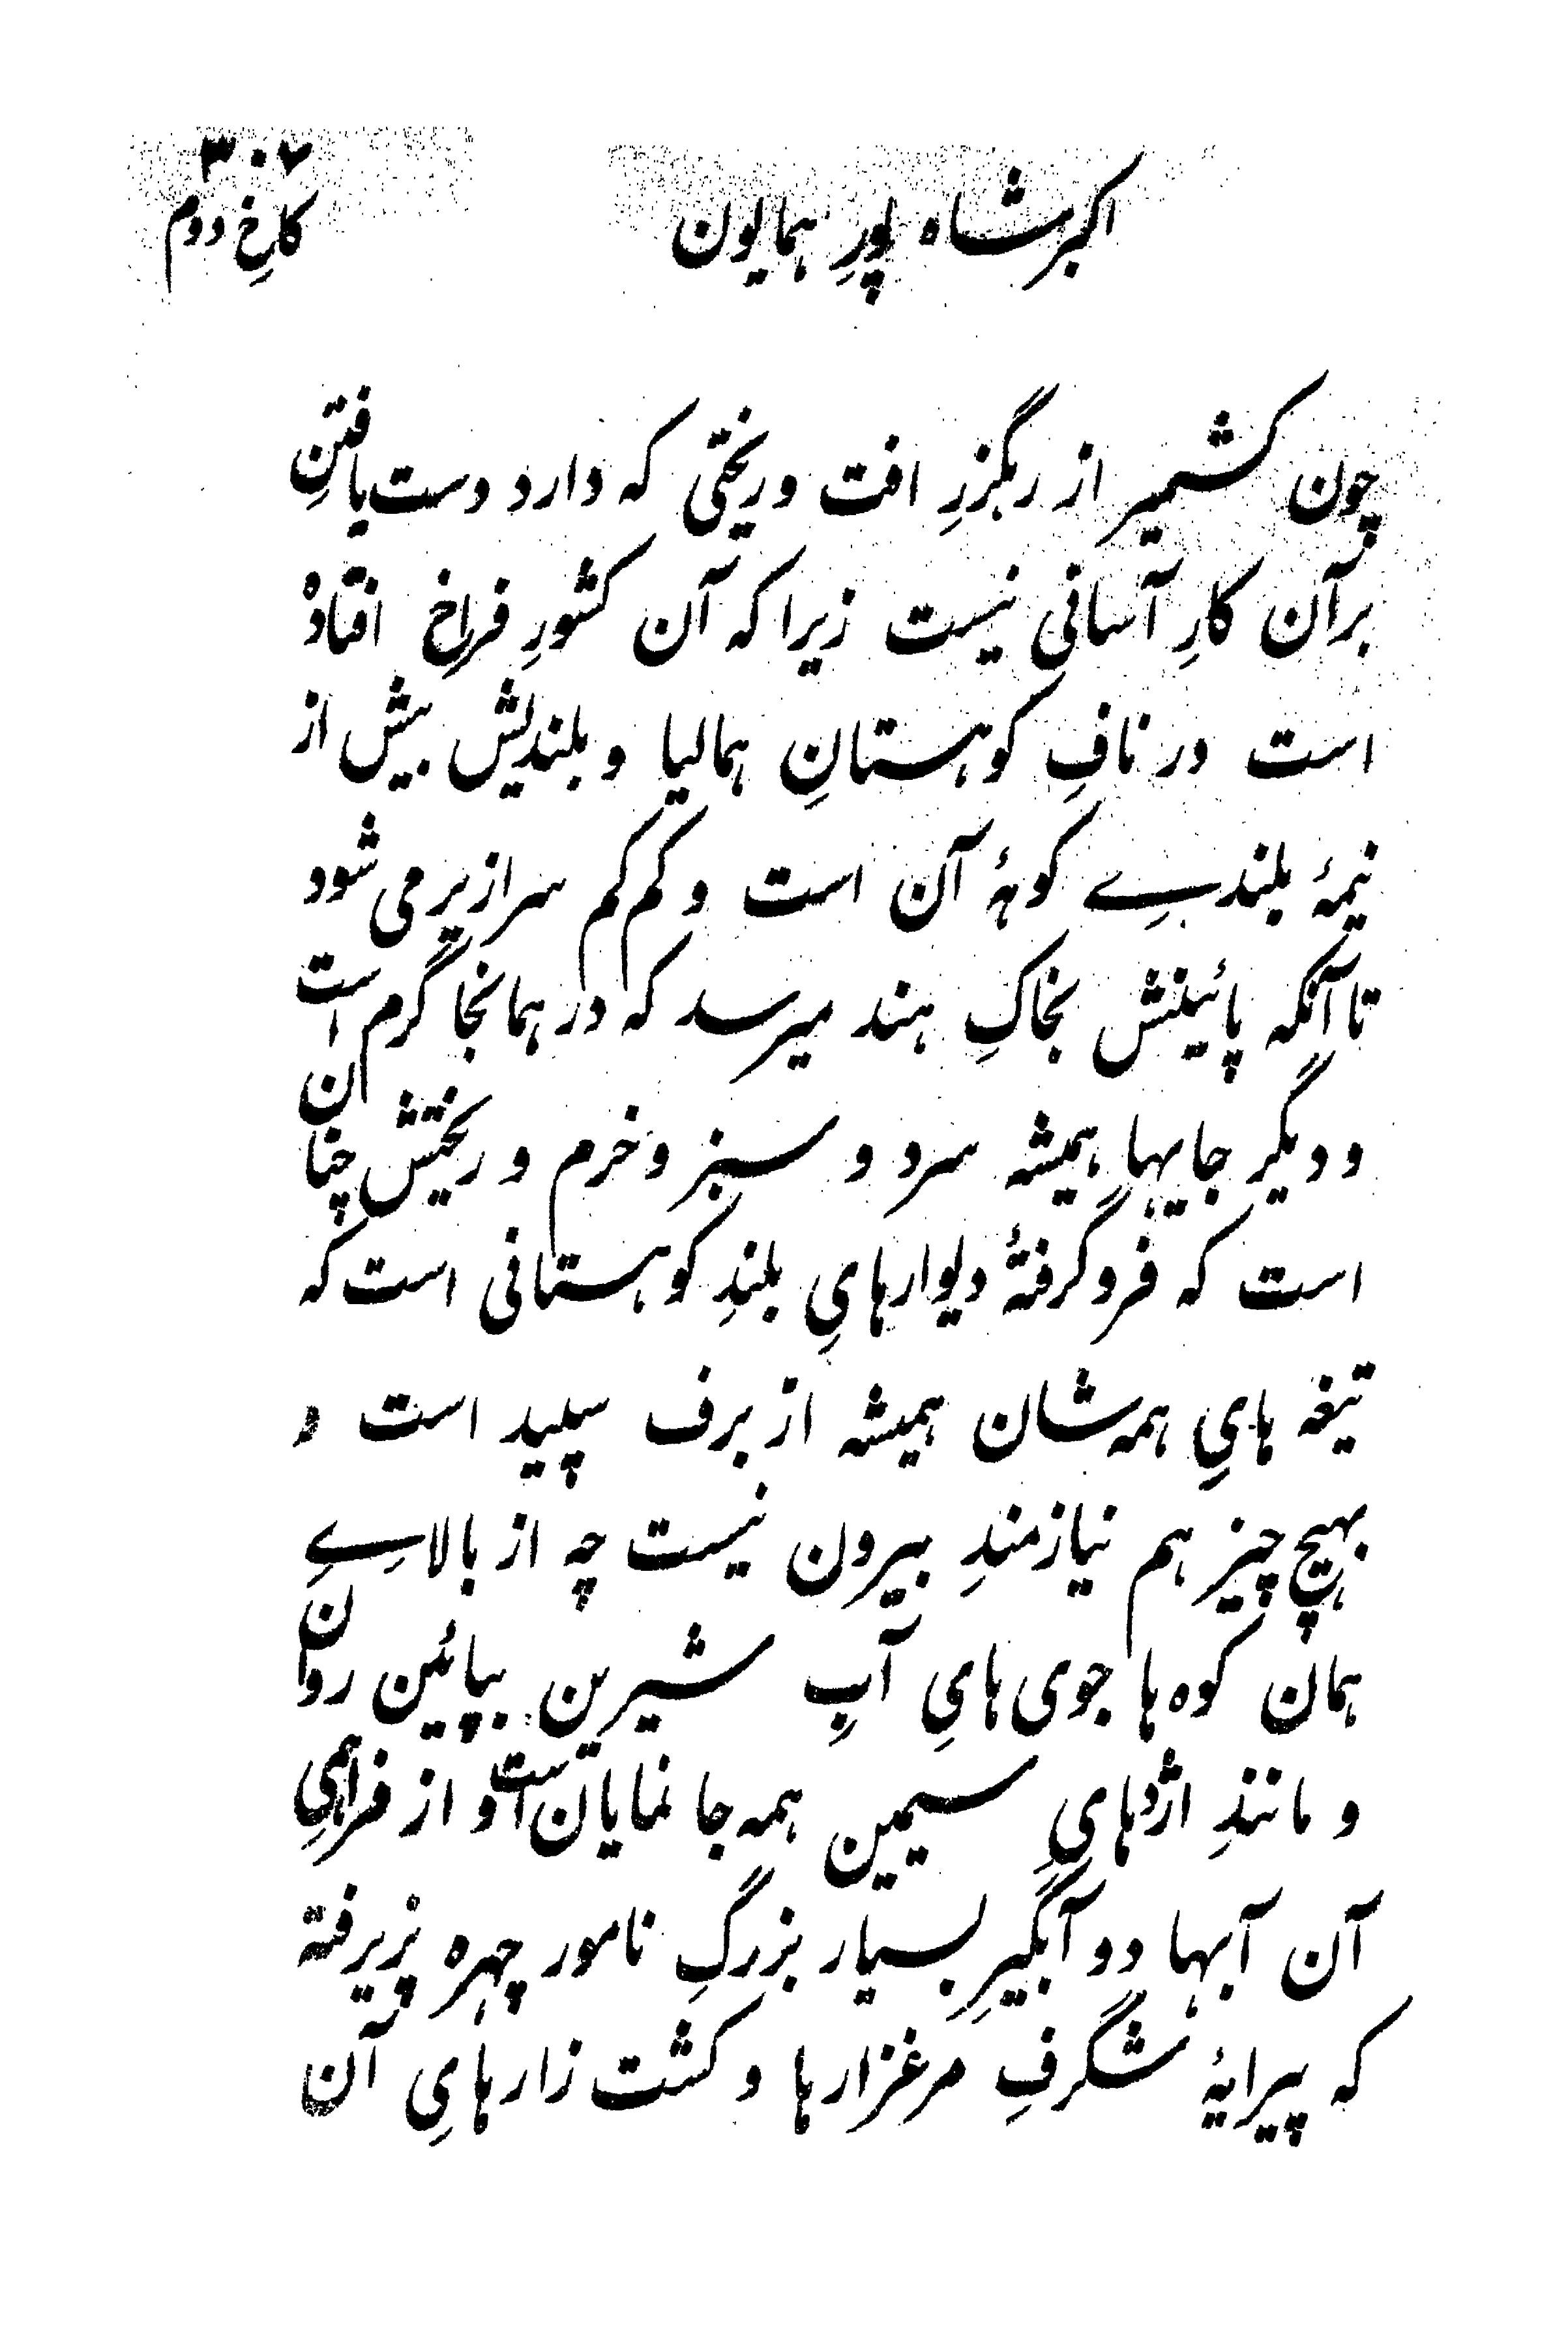 ۳۰۷
اکبر شاه پورِ همایون
کاخِ دوم
چون کشمیر از رهگزرِ افت و ریختی که دارد دست یافتنِ
برآن کارِ آسانی نیست زیرا که آن کشورِ فراخ افتادهٔ
است در نافِ کوهستانِ همالیا و بلندیش بیش از
نیمهٔ بلندےِ کوههٔ آن است و کم کم سرازیر می شود
تا آنکه پائینش بخاکِ هند میرسد که در همانجا گرم است
و دیگر جایها همیشه سرد و سبز و خرم و ریختش چنان
است که فرو گرفتهٔ دیوارهایِ بلندِ کوهستانی است که
تیغه هایِ همه شان همیشه از برف سپید است و
بهیچ چیز هم نیازمندِ بیرون نیست چه از بالاےِ
همان کوه ها جوی هایِ آبِ شیرین بپائین روان
و مانندِ اژدهایِ سیمین همه جا نمایان است و از فراهمیِ
آن آبها دو آبگیرِ بسیار بزرگِ نامور چهره پزیرفته
که پیرایهٔ شگرفِ مرغزارها و کشت زارهایِ آن